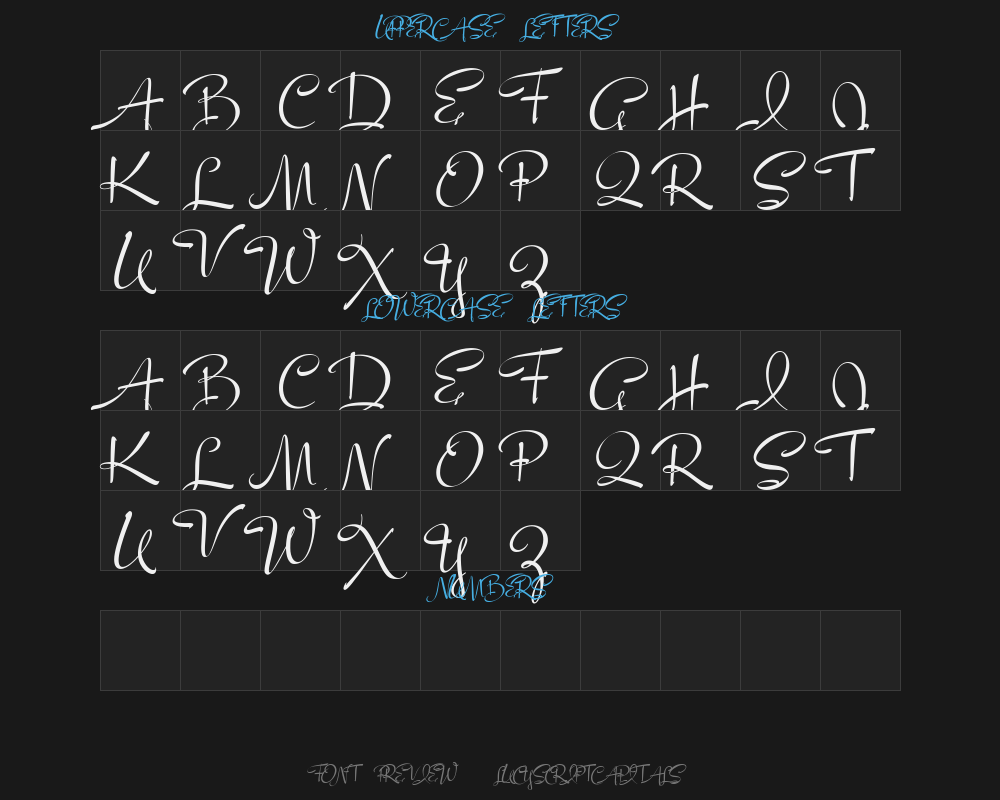 UPPERCASE LETTERS
A B C D E F G H I J
K L M N O P Q R S T
U V W X Y Z
LOWERCASE LETTERS
A B C D E F G H I J
K L M N O P Q R S T
U V W X Y Z
NUMBERS
FONT PREVIEW LUCYSCRIPTCAPITALS